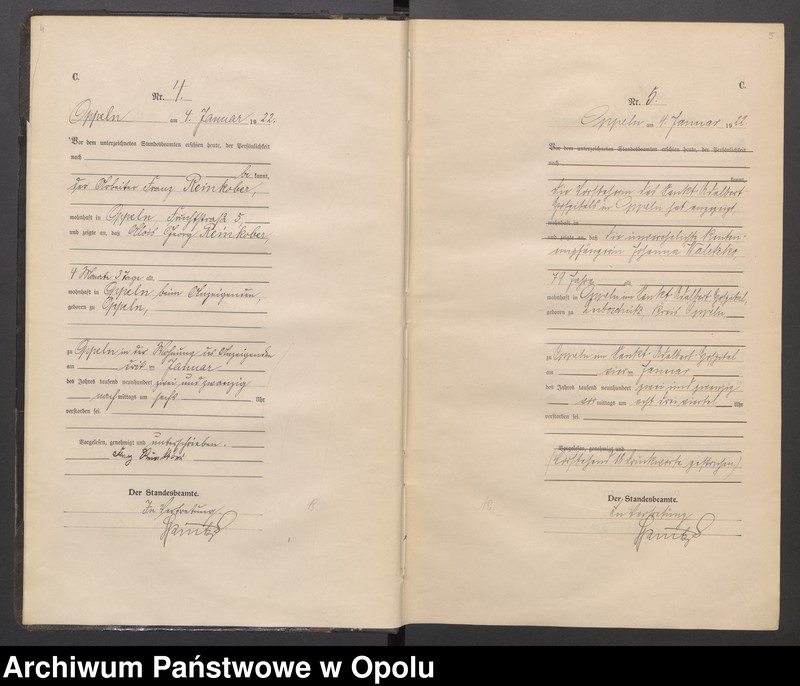 C.
Nr. 4.
Oppeln am 4. Januar 1922.
Vor dem unterzeichneten Standesbeamten erschien heute, der Persönlichkeit
nach
be kannt,
der Arbeiter Franz Reinkober,
wohnhaft in Oppeln, 5,
und zeigte an, daß Alois Georg Reinkober,
4 Monate 3 Tage alt,
wohnhaft in Oppeln beim Anzeigenden,
geboren zu Oppeln,
zu Oppeln in der Wohnung des Anzeigenden
am drit= Januar
des Jahres tausend neunhundert zwei und zwanzig
nachmittags um sechs Uhr
verstorben sei.
Vorgelesen, genehmigt und unterschrieben.
Der Standesbeamte.
In Vertretung.
C.
Nr. 5
Oppeln am 4. Januar 1922
Vor dem unterzeichneten Standesbeamten erschien heute, der Persönlichkeit
nach
kannt,
Die Vorsteherin des Sankt Adalbert
Hospitals in Oppeln hat angezeigt,
wohnhaft in
und zeigte an, daß die unverehelichte Renten=
empfängerin Johanna
79 Jahre alt,
wohnhaft in Oppeln im Sankt Adalbert Hospital,
geboren zu Kreis Oppeln
zu Oppeln im Sankt Adalbert Hospital
am vier= Januar
des Jahres tausend neunhundert zwei und zwanzig
vormittags um acht drei viertel Uhr
verstorben sei.
Vorgelesen, genehmigt und
(Vorstehend 18 Druckworte gestrichen)
Der Standesbeamte.
In Vertretung
Archiwum Państwowe w Opolu